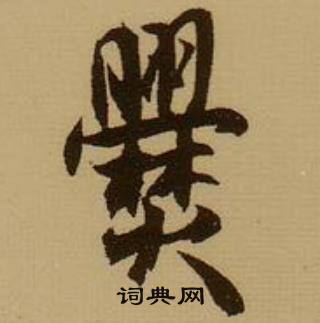 爨
词典网